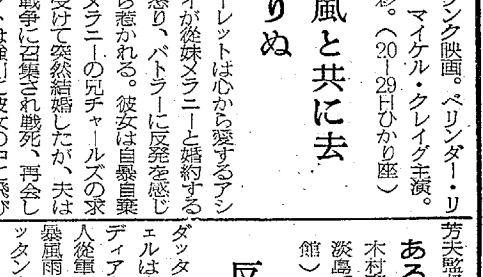 ンク映画。ベリンダー・リ
マイケル・クレイグ主演。
彩。（20―29日ひかり座）
風と共に去
りぬ
ーレットは心から愛するアシ
イが従妹メラニーと婚約する
怒り、バトラーに反発を感じ
ら惹かれる。彼女は自暴自棄
メラニーの兄チャールズの求
受けて突然結婚したが、夫は
戦争に召集され戦死、再会し
芳夫監
ある
木村
淡島
館）
反
ダッタ
ェルは
ディア
人従軍
暴風雨
ッタン